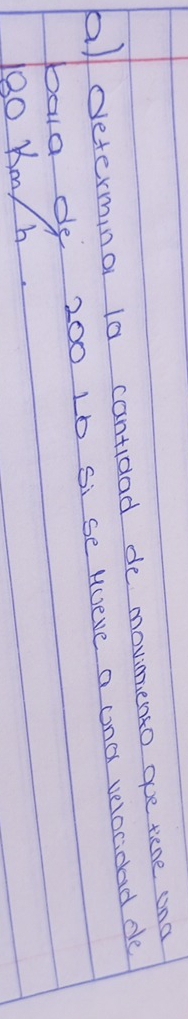 a) Determina la cantidad de movimiento que tiene una
bala de 200 Lb si se Mueve a una velocidad de
180 Km/h.